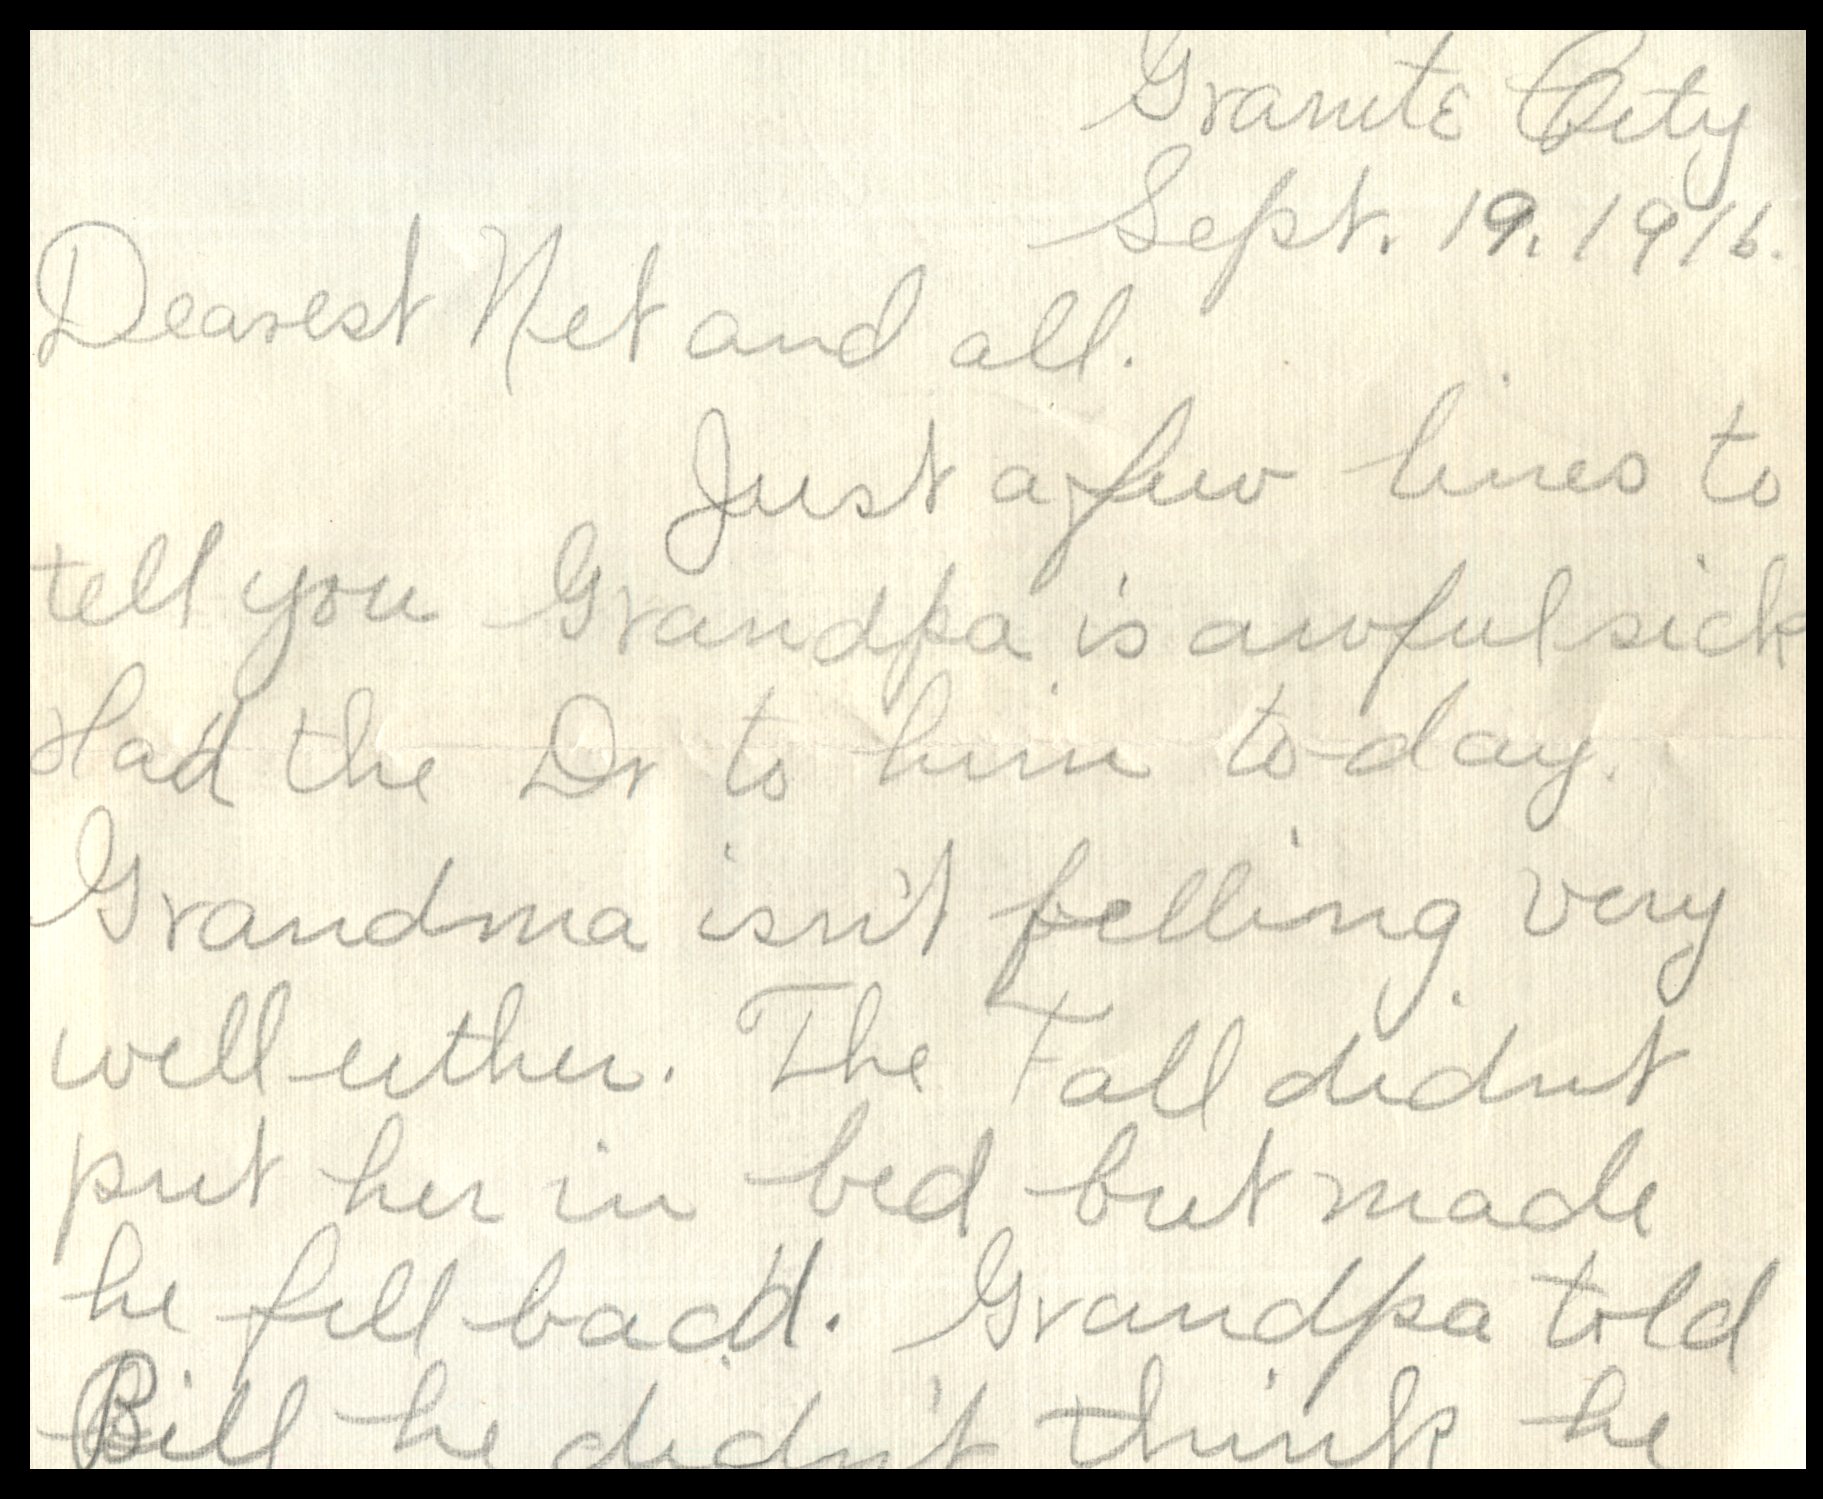 Granite City
Sept. 19. 1916.
Dearest Net and all.
Just a few lines to
tell you Grandpa is awful sick
Had the Dr to him to-day.
Grandma isn't felling very
well either. The Fall didnt
put her in bed but made
he fell bad. Grandpa told
Bill he didn't think he